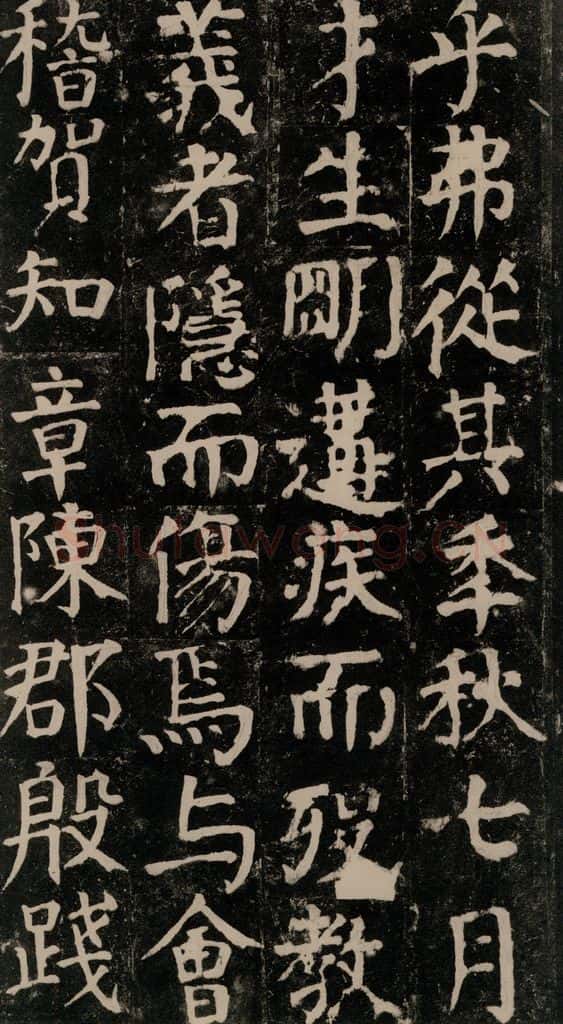 乎弗從其年秋七月
才生明遘疾而歿教
義者隱而傷焉与會
稽賀知章陳郡殷踐
shufawang.cn